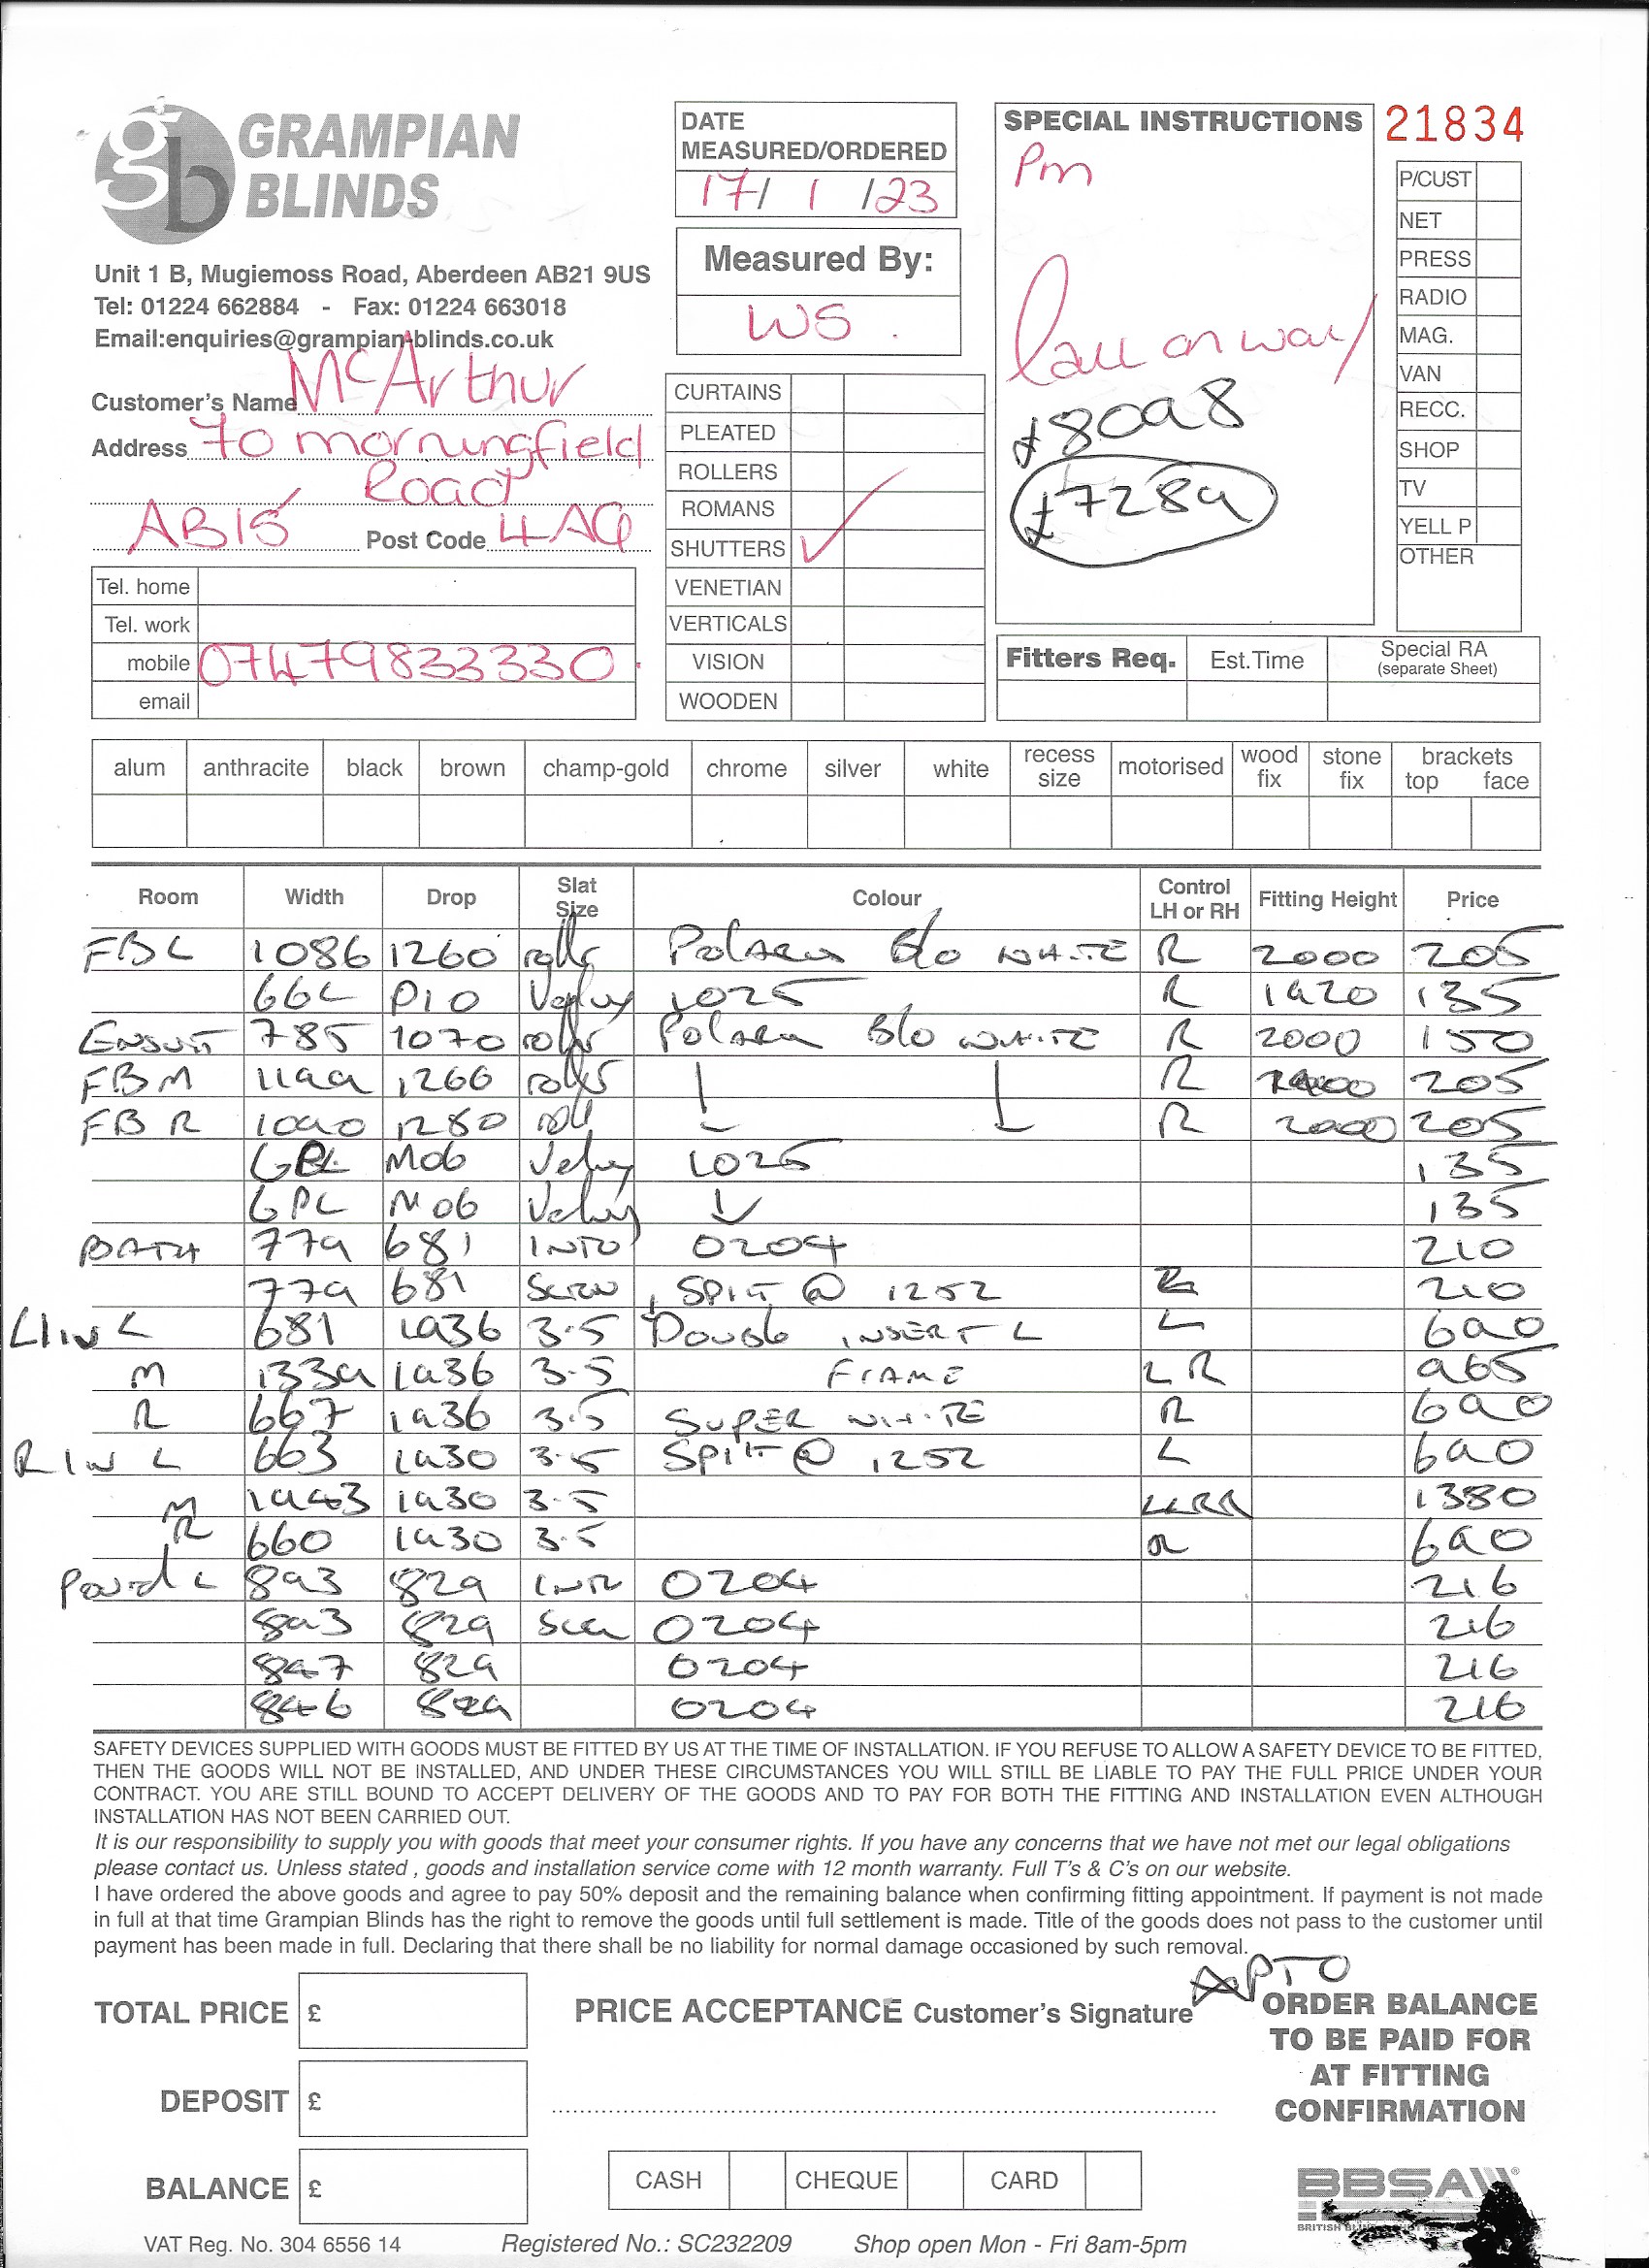 GRAMPIAN BLINDS
Unit 1 B, Mugiemoss Road, Aberdeen AB21 9US
Tel: 01224 662884 - Fax: 01224 663018
Email:enquiries@grampian-blinds.co.uk
Customer's Name McArthur
Address 70 morningfield
Road
AB15 Post Code 4AQ
Tel. home
Tel. work
mobile 07479833330
email
DATE MEASURED/ORDERED
17/ 1 /23
Measured By:
WS.
CURTAINS
PLEATED
ROLLERS
ROMANS
SHUTTERS ✓
VENETIAN
VERTICALS
VISION
WOODEN
SPECIAL INSTRUCTIONS
Pm
Call on way
£8098
£7289
21834
P/CUST
NET
PRESS
RADIO
MAG.
VAN
RECC.
SHOP
TV
YELL P
OTHER
Fitters Req. Est.Time Special RA (separate Sheet)
alum anthracite black brown champ-gold chrome silver white recess size motorised wood fix stone fix brackets top face
Room Width Drop Slat Size Colour Control LH or RH Fitting Height Price
FBL 1086 1260 rolls Polaris B/o WHITE R 2000 205
1025 R 1920 135
Ensuit 785 1070 roller Polaris B/o WHITE R 2000 150
FBM 1199 1266 roller R 205
FBR 1090 1280 roll R 2000 205
M06 1025 135
GPL M06 135
BATH 779 681 INTU 0204 210
779 681 Screw SPlit @ 1252 210
L 681 1936 3.5 Double INSERT L L 690
M 1339 1936 3.5 FRAME LR 965
R 667 1936 3.5 SUPER WHITE R 690
L 663 1930 3.5 SPlit @ 1252 L 690
M 1943 1930 3.5 LLRR 1380
R 660 1930 3.5 R 690
L 893 829 INTU 0204 216
893 829 Scr 0204 216
847 829 0204 216
846 829 0204 216
SAFETY DEVICES SUPPLIED WITH GOODS MUST BE FITTED BY US AT THE TIME OF INSTALLATION. IF YOU REFUSE TO ALLOW A SAFETY DEVICE TO BE FITTED,
THEN THE GOODS WILL NOT BE INSTALLED, AND UNDER THESE CIRCUMSTANCES YOU WILL STILL BE LIABLE TO PAY THE FULL PRICE UNDER YOUR
CONTRACT. YOU ARE STILL BOUND TO ACCEPT DELIVERY OF THE GOODS AND TO PAY FOR BOTH THE FITTING AND INSTALLATION EVEN ALTHOUGH
INSTALLATION HAS NOT BEEN CARRIED OUT.
It is our responsibility to supply you with goods that meet your consumer rights. If you have any concerns that we have not met our legal obligations
please contact us. Unless stated , goods and installation service come with 12 month warranty. Full T's & C's on our website.
I have ordered the above goods and agree to pay 50% deposit and the remaining balance when confirming fitting appointment. If payment is not made
in full at that time Grampian Blinds has the right to remove the goods until full settlement is made. Title of the goods does not pass to the customer until
payment has been made in full. Declaring that there shall be no liability for normal damage occasioned by such removal.
PTO
TOTAL PRICE £
PRICE ACCEPTANCE Customer's Signature
ORDER BALANCE
TO BE PAID FOR
AT FITTING
CONFIRMATION
DEPOSIT £
BALANCE £
CASH CHEQUE CARD
BBSA
BRITISH
VAT Reg. No. 304 6556 14 Registered No.: SC232209 Shop open Mon - Fri 8am-5pm